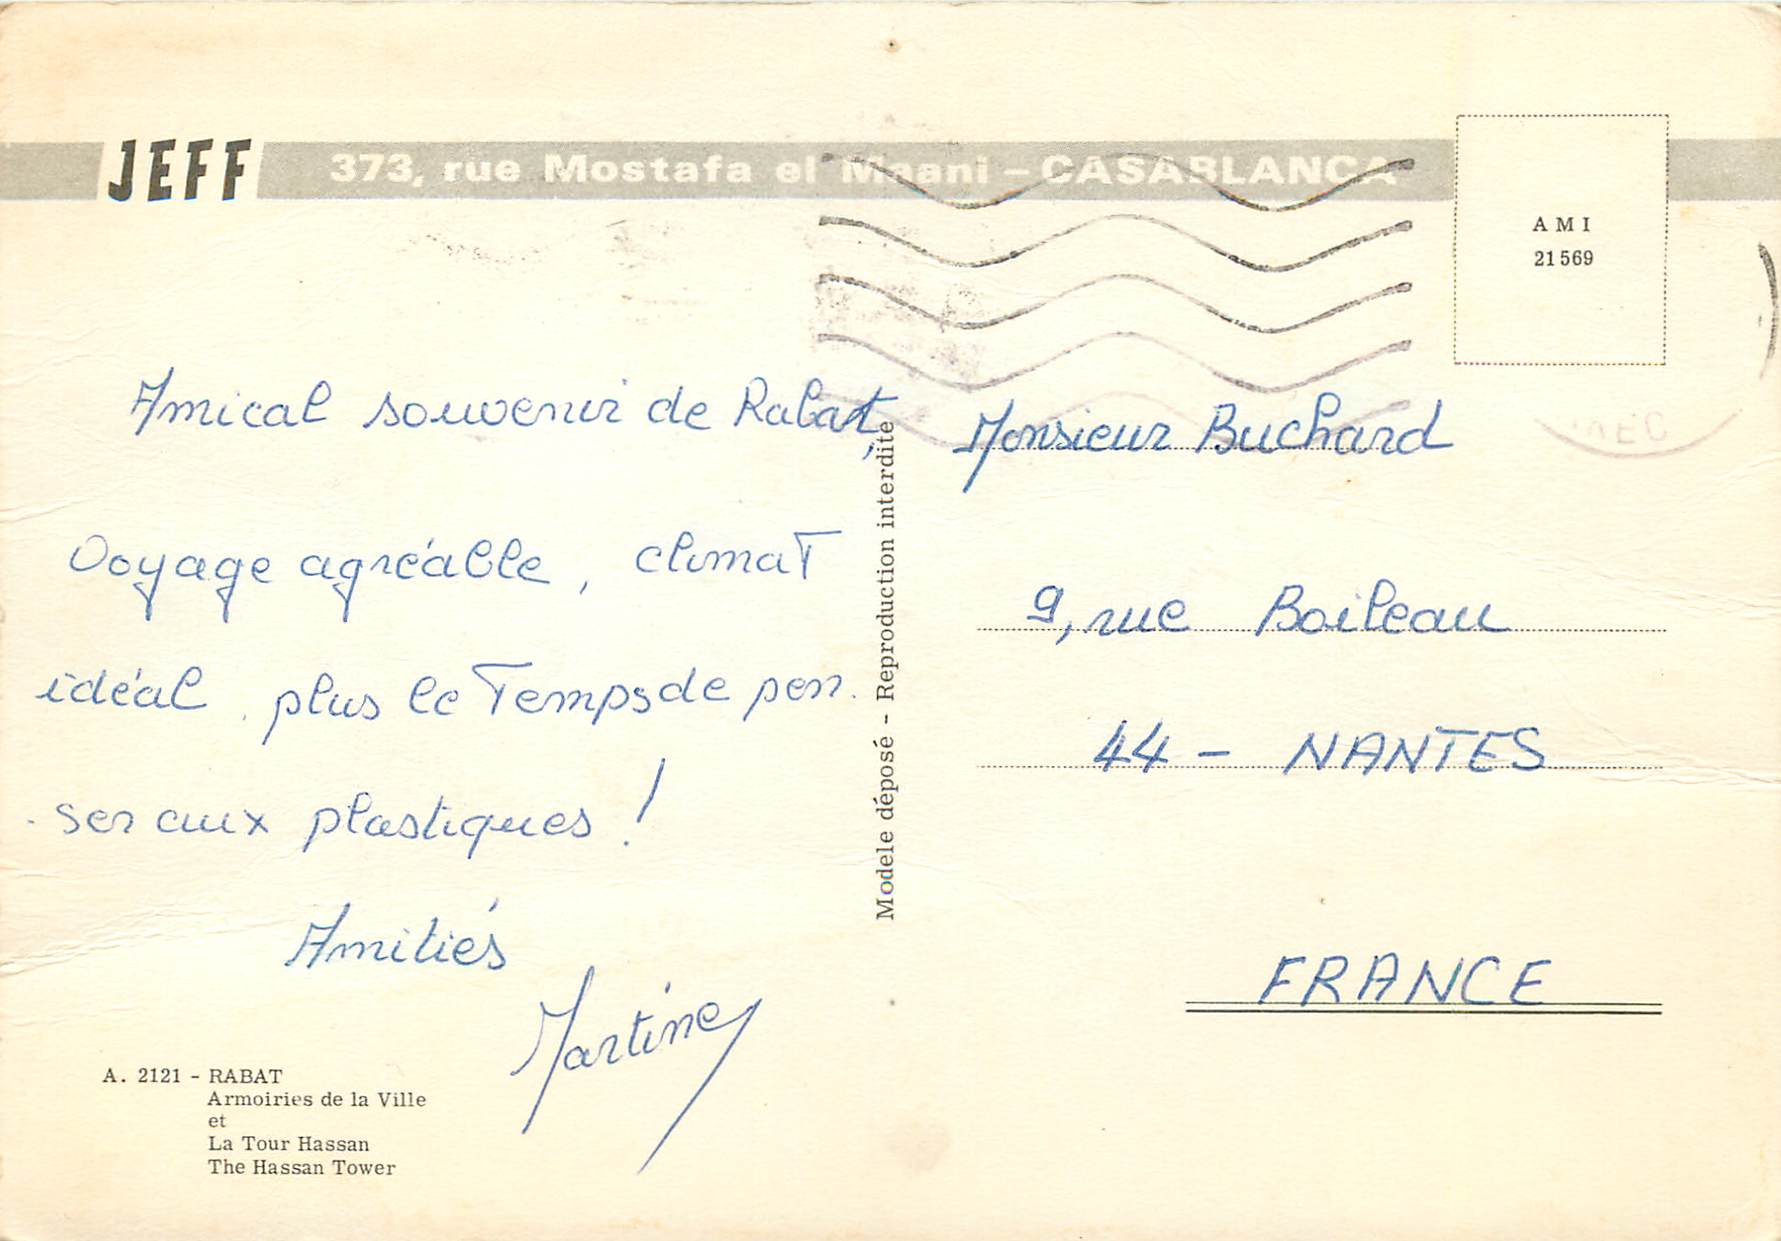 JEFF 373, rue Mostafa el Maani - CASABLANCA
AMI
21569
Amical souvenir de Rabat,
Voyage agréable, climat
idéal, plus le Temps de pen.
. ser aux plastiques !
Amitiés
Martine
A. 2121 - RABAT
Armoiries de la Ville
et
La Tour Hassan
The Hassan Tower
Modele déposé - Reproduction interdite
Monsieur Buchard
9, rue Boileau
44 - NANTES
FRANCE